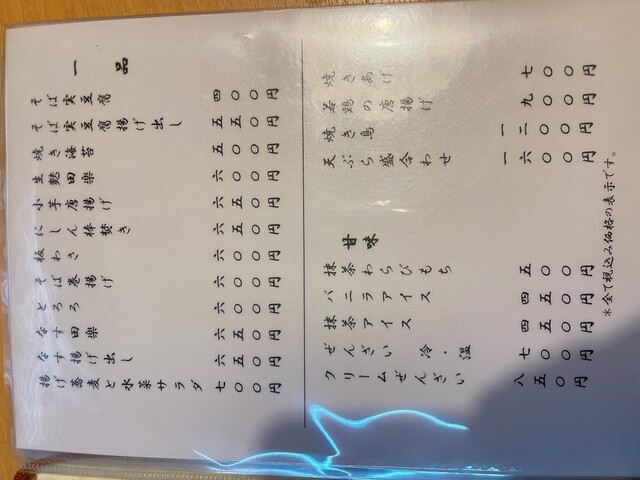 一品
そば実豆腐 四〇〇円
そば実豆腐揚げ出し 五五〇円
焼き海苔 五〇〇円
生麩田楽 六〇〇円
小芋唐揚げ 六五〇円
にしん棒焚き 六五〇円
板わさ 六〇〇円
そば巻揚げ 六〇〇円
とろろ 六〇〇円
なす田楽 六五〇円
なす揚げ出し 六五〇円
揚げ蕎麦と水菜サラダ 七〇〇円
焼きあげ 七〇〇円
若鶏の唐揚げ 九〇〇円
焼き鳥 一二〇〇円
天ぷら盛合わせ 一六〇〇円
甘味
抹茶わらびもち 五〇〇円
バニラアイス 四五〇円
抹茶アイス 四五〇円
ぜんざい 冷・温 七〇〇円
クリームぜんざい 八五〇円
＊全て税込み価格の表示です。